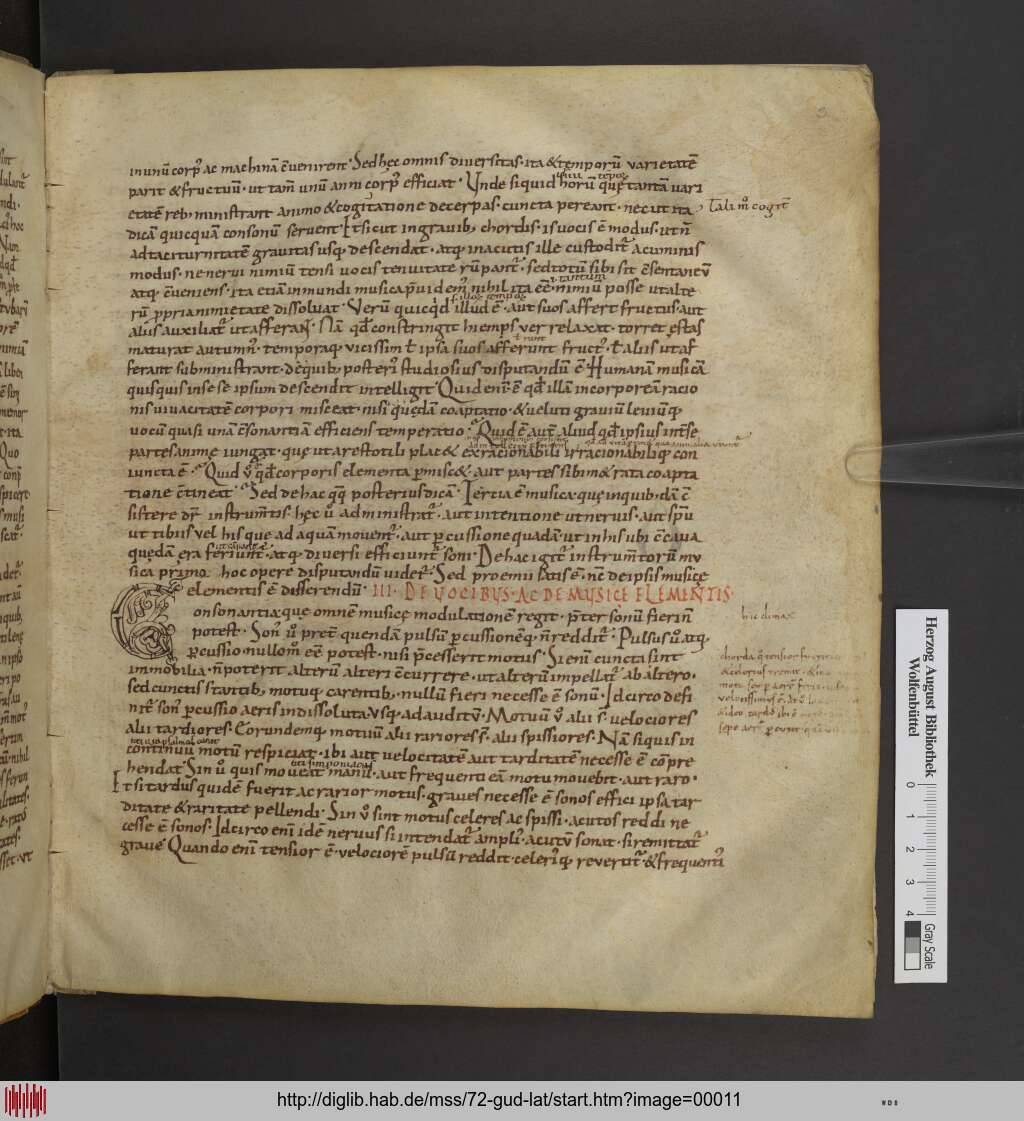 in unū corp᷒ ac machinā c̄venirent. Sed hęc omnis diversitas. ita & temporū varietatē
parit & fructuū. ut tam̄ unū anni corp᷒ efficiat. Unde siquid horū quę tantam vari
etatē reb; ministrant animo & cogitatione decerpas. cuncta pereant. nec ut ita
dicā quicquā consonū servent. Et sicut in gravib; chordis. is vocis ē modus. ut n̄
ad taciturnitatē gravitas usq; descendat. atq; in acutis ille custodit᷒ acuminis
modus. ne nervi nimiū tensi vocis tenuitate rūpant᷒. sed totū sibi sit c̄sentaneū
atq; c̄veniens. ita etiā in mundi musica pvidem᷒ nihil ita eē nimiū posse ut alte
rū ppria nimietate dissolvat. Verū quicqd illud ē. aut suos affert fructus. aut
aliis auxiliat᷒ ut afferant. Nā qd constringit hiemps ver relaxat. torret ęstas
maturat autumn᷒. temporaq; vicissim ł ipsa suos afferunt fruct᷒. ł aliis ut af
ferant subministrant. de quib; posteri᷒ studiosius disputandū ē. Humanā musicā
quisquis in sese ipsum descendit intelligit. Quid enī ē qd illā incorporeā ratio
nis vivacitatē corpori misceat. nisi quędā coaptatio. & veluti graviū leviūq;
vocū quasi unā c̄sonantiā efficiens temperatio. Quid ē aut̄ aliud qd ipsius int᷒ se
partes anime iungat. quę ut arestotili plac& ex racionabili irracionabiliq; con
iuncta ē. Quid v̊ qd corporis elementa pmisc&. aut partes sibim& rata coapta
tione c̄tineat. Sed de hac qq; posterius dicā. Tertia ē musica. quę in quib;dā c̄
sistere dr̄ instrum̄tis. hęc v̊ administrat᷒. aut intentione ut nervis. aut spū
ut tibiis vel his que ad aquā movent᷒. aut pcussione quadā. ut in his ubi c̄cava
quędā era feriunt᷒. atq; diversi efficiunt᷒ soni. De hac igit᷒ instrum̄torū mu
sica primo hoc opere disputandū videt᷒. Sed proemii satis ē. nc̄ de ipsis musicę
elementis ē disserendū. III. DE VOCIBUS. AC DE MUSICE ELEMENTIS.
Consonantia quę omnē musicę modulationē regit. pter sonū fieri n̄
hic climax
potest. Son᷒ v̊ pret᷒ quendā pulsū pcussionēq; n̄ reddit᷒. Pulsus v̊ atq;
pcussio. nullom᷒ eē potest. nisi pcesserit motus. Si enī cuncta sint
immobilia. n̄ poterit alterū alteri c̄currere. ut alterū impellat᷒ ab altero.
sed cunctis stantib; motuq; carentib; nullū fieri necesse ē sonū. Idcirco defi
nit᷒ son᷒ pcussio aeris indissoluta usq; ad auditū. Motuū v̊ alii s᷒ velociores
alii tardiores. Eorundemq; motuū alii rariores s᷒. alii spissiores. Nā siquis in
continuū motū respiciat. ibi aut velocitatē aut tarditatē necesse ē cōpre
hendat. Sin v̊ quis moveat manū. aut frequenti eā motu movebit. aut raro.
Et si tardus quidē fuerit ac rarior motus. graves necesse ē sonos effici ipsa tar
ditate & raritate pellendi. Sin v̊ sint motus celeres ac spissi. acutos reddi ne
cesse ē sonos. Idcirco enī idē nervus si intendat᷒ ampli᷒. acutū sonat. si remittat᷒
gravē. Quando enī tensior ē. velociorē pulsū reddit. celeri᷒q; revertit᷒. & frequenti᷒
Herzog August Bibliothek
Wolfenbüttel
0 1 2 3 4
Gray Scale
http://diglib.hab.de/mss/72-gud-lat/start.htm?image=00011